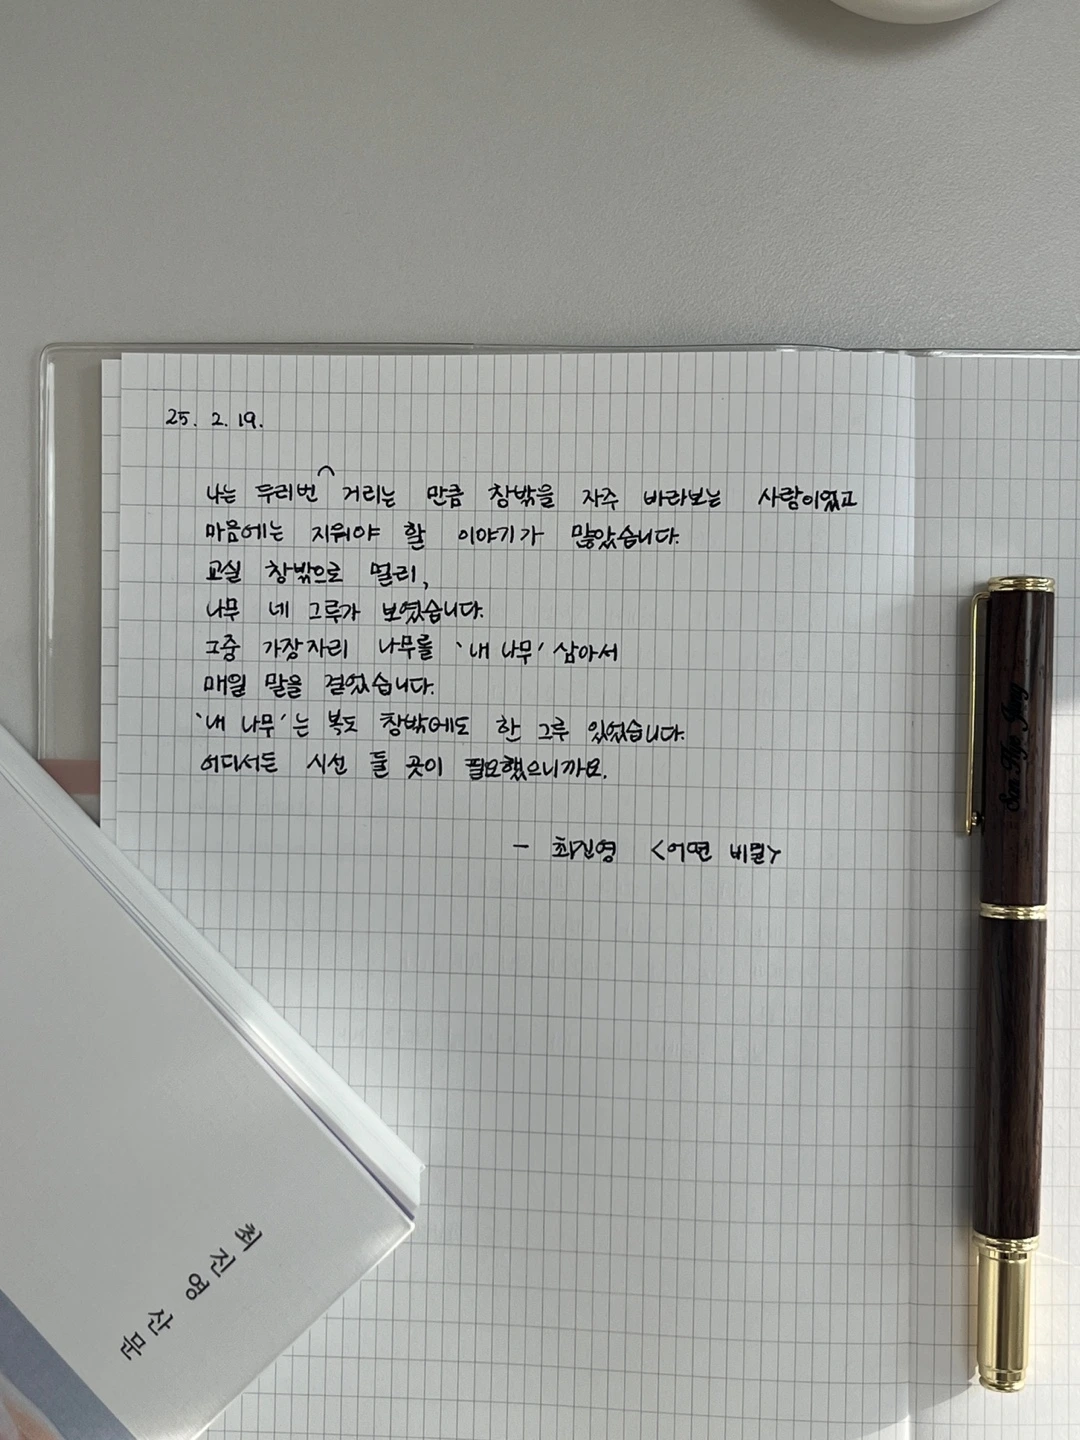 25. 2. 19.
나는 두리번거리는 만큼 창밖을 자주 바라보는 사람이었고
마음에는 지워야 할 이야기가 많았습니다.
교실 창밖으로 멀리,
나무 네 그루가 보였습니다.
그중 가장자리 나무를 '내 나무' 삼아서
매일 말을 걸었습니다.
'내 나무'는 복도 창밖에도 한 그루 있었습니다.
어디서든 시선 둘 곳이 필요했으니까요.
- 최진영 <어떤 비밀>
최진영 산문
Son Hye Jung